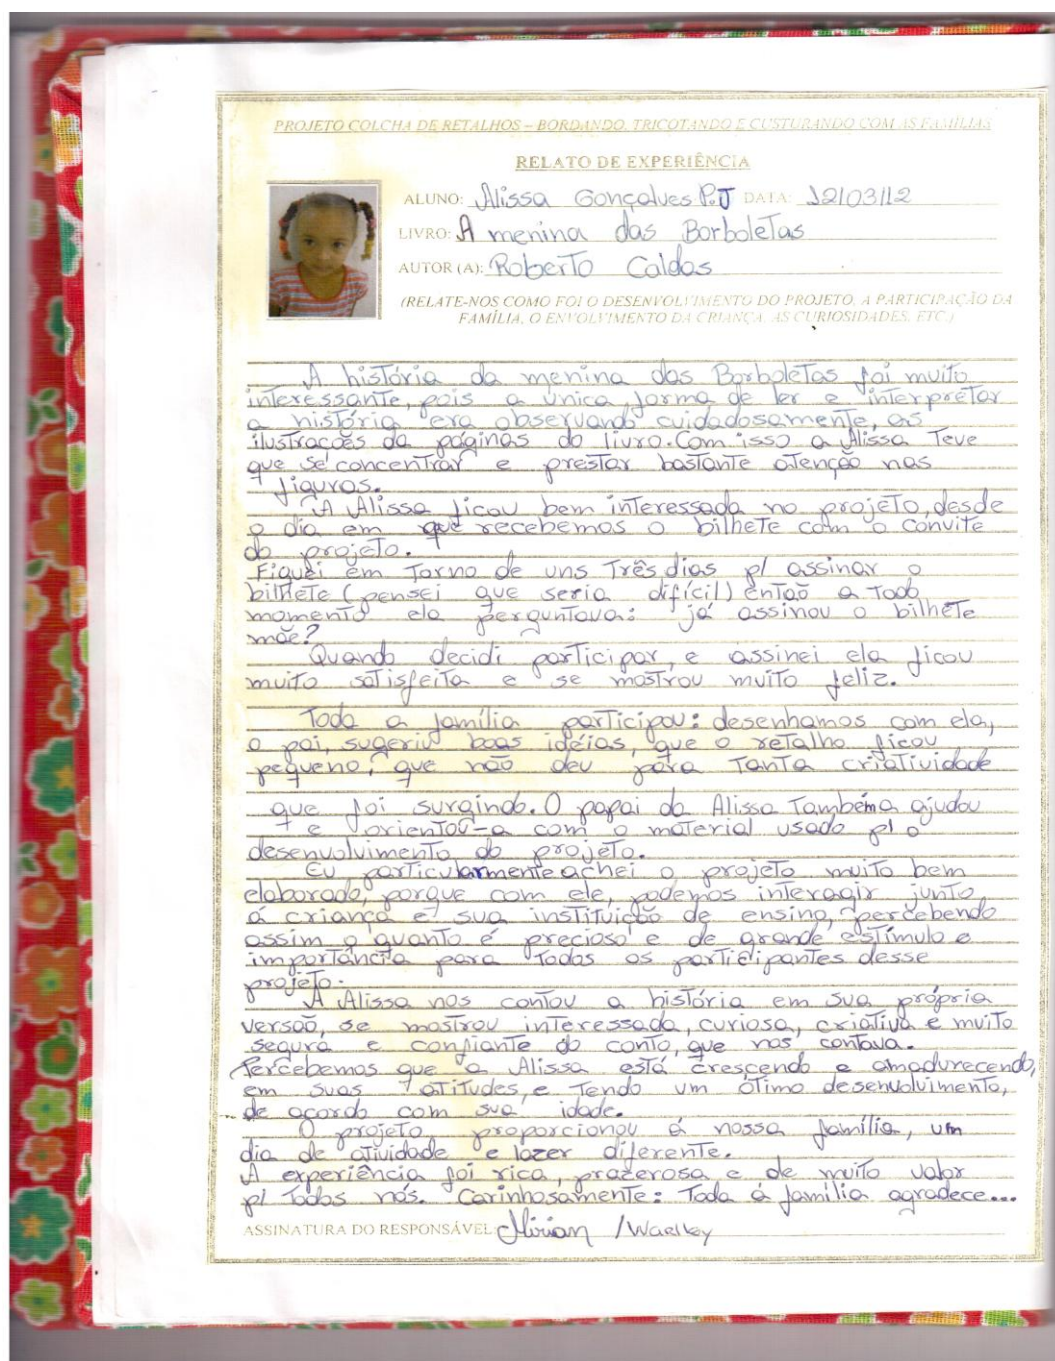 PROJETO COLCHA DE RETALHOS – BORDANDO, TRICOTANDO E CUSTURANDO COM AS FAMÍLIAS
RELATO DE EXPERIÊNCIA
ALUNO: Alissa Gonçalves P.J DATA: 12/03/12
LIVRO: A menina das Borboletas
AUTOR (A): Roberto Caldas
(RELATE-NOS COMO FOI O DESENVOLVIMENTO DO PROJETO, A PARTICIPAÇÃO DA
FAMÍLIA, O ENVOLVIMENTO DA CRIANÇA, AS CURIOSIDADES, ETC.)
A história da menina das Borboletas foi muito
interessante, pois a única forma de ler e interpretar
a história era observando cuidadosamente, as
ilustrações da páginas do livro. Com isso a Alissa teve
que se concentrar e prestar bastante atenção nas
figuras.
A Alissa ficou bem interessada no projeto, desde
o dia em que recebemos o bilhete com o convite
do projeto.
Fiquei em torno de uns três dias p/ assinar o
bilhete (pensei que seria difícil) então a todo
momento ela perguntava: já assinou o bilhete
mãe?
Quando decidi participar, e assinei ela ficou
muito satisfeita e se mostrou muito feliz.
Toda a família participou: desenhamos com ela,
o pai, sugeriu boas idéias, que o retalho ficou
pequeno, que não deu para tanta criatividade
que foi surgindo. O papai da Alissa também a ajudou
e orientou-a com o material usado p/ o
desenvolvimento do projeto.
Eu particularmente achei o projeto muito bem
elaborado, porque com ele, podemos interagir junto
á criança e sua instituição de ensino, percebendo
assim o quanto é precioso e de grande estímulo e
importância para todos os participantes desse
projeto.
A Alissa nos contou a história em sua própria
versão, se mostrou interessada, curiosa, criativa e muito
segura e confiante do conto, que nos contava.
Percebemos que a Alissa está crescendo e amadurecendo,
em suas atitudes, e tendo um ótimo desenvolvimento,
de acordo com sua idade.
O projeto proporcionou á nossa família, um
dia de atividade e lazer diferente.
A experiência foi rica, prazerosa e de muito valor
p/ todos nós. Carinhosamente: Toda a família agradece...
ASSINATURA DO RESPONSÁVEL: Mirian / Warlley